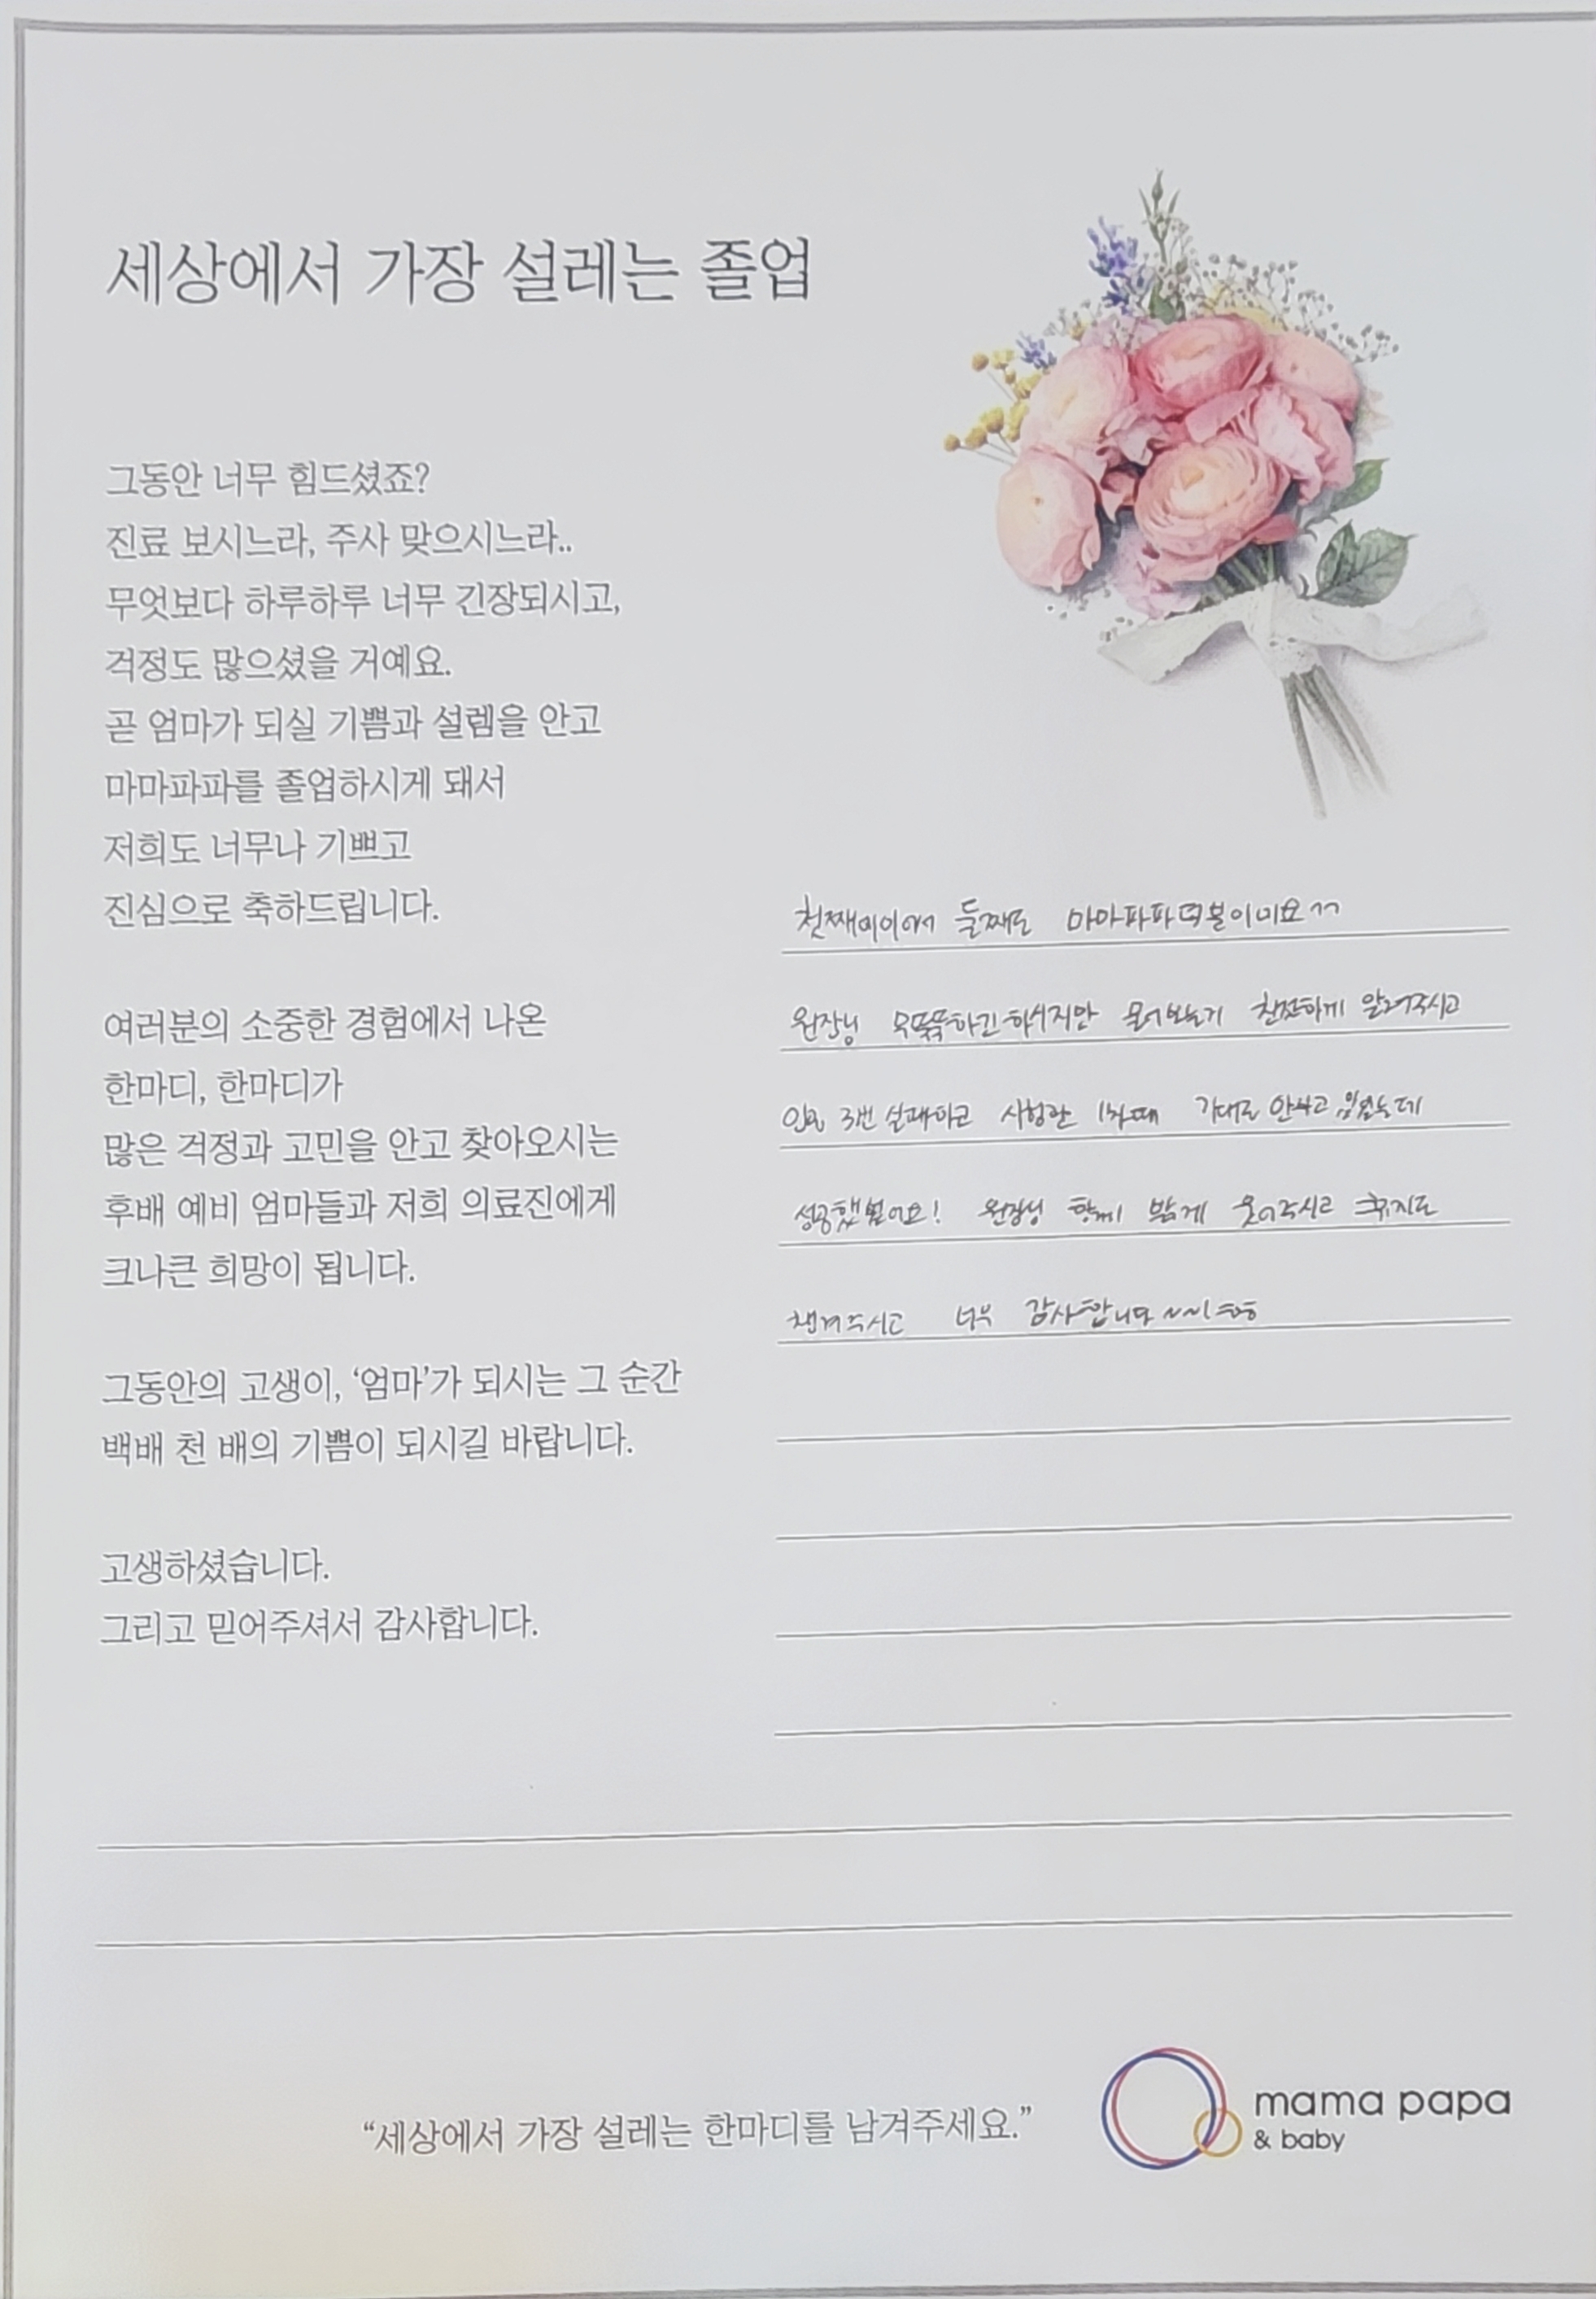 세상에서 가장 설레는 졸업
그동안 너무 힘드셨죠?
진료 보시느라, 주사 맞으시느라..
무엇보다 하루하루 너무 긴장되시고,
걱정도 많으셨을 거예요.
곧 엄마가 되실 기쁨과 설렘을 안고
마마파파를 졸업하시게 돼서
저희도 너무나 기쁘고
진심으로 축하드립니다.
여러분의 소중한 경험에서 나온
한마디, 한마디가
많은 걱정과 고민을 안고 찾아오시는
후배 예비 엄마들과 저희 의료진에게
크나큰 희망이 됩니다.
그동안의 고생이, ‘엄마’가 되시는 그 순간
백배 천 배의 기쁨이 되시길 바랍니다.
고생하셨습니다.
그리고 믿어주셔서 감사합니다.
첫째에이어서 둘째도 마마파파덕분이네요^^
원장님 무뚝뚝하긴하시지만 물어보는거 친절하게 알려주시고
인공 3번 실패하고 시험관 1차때 기대도 안하고 있었는데
성공했었어요! 원장님 함께 밝게 웃어주시고 휴지도
챙겨주시고 너무 감사합니다~~!
“세상에서 가장 설레는 한마디를 남겨주세요.”
mama papa
& baby